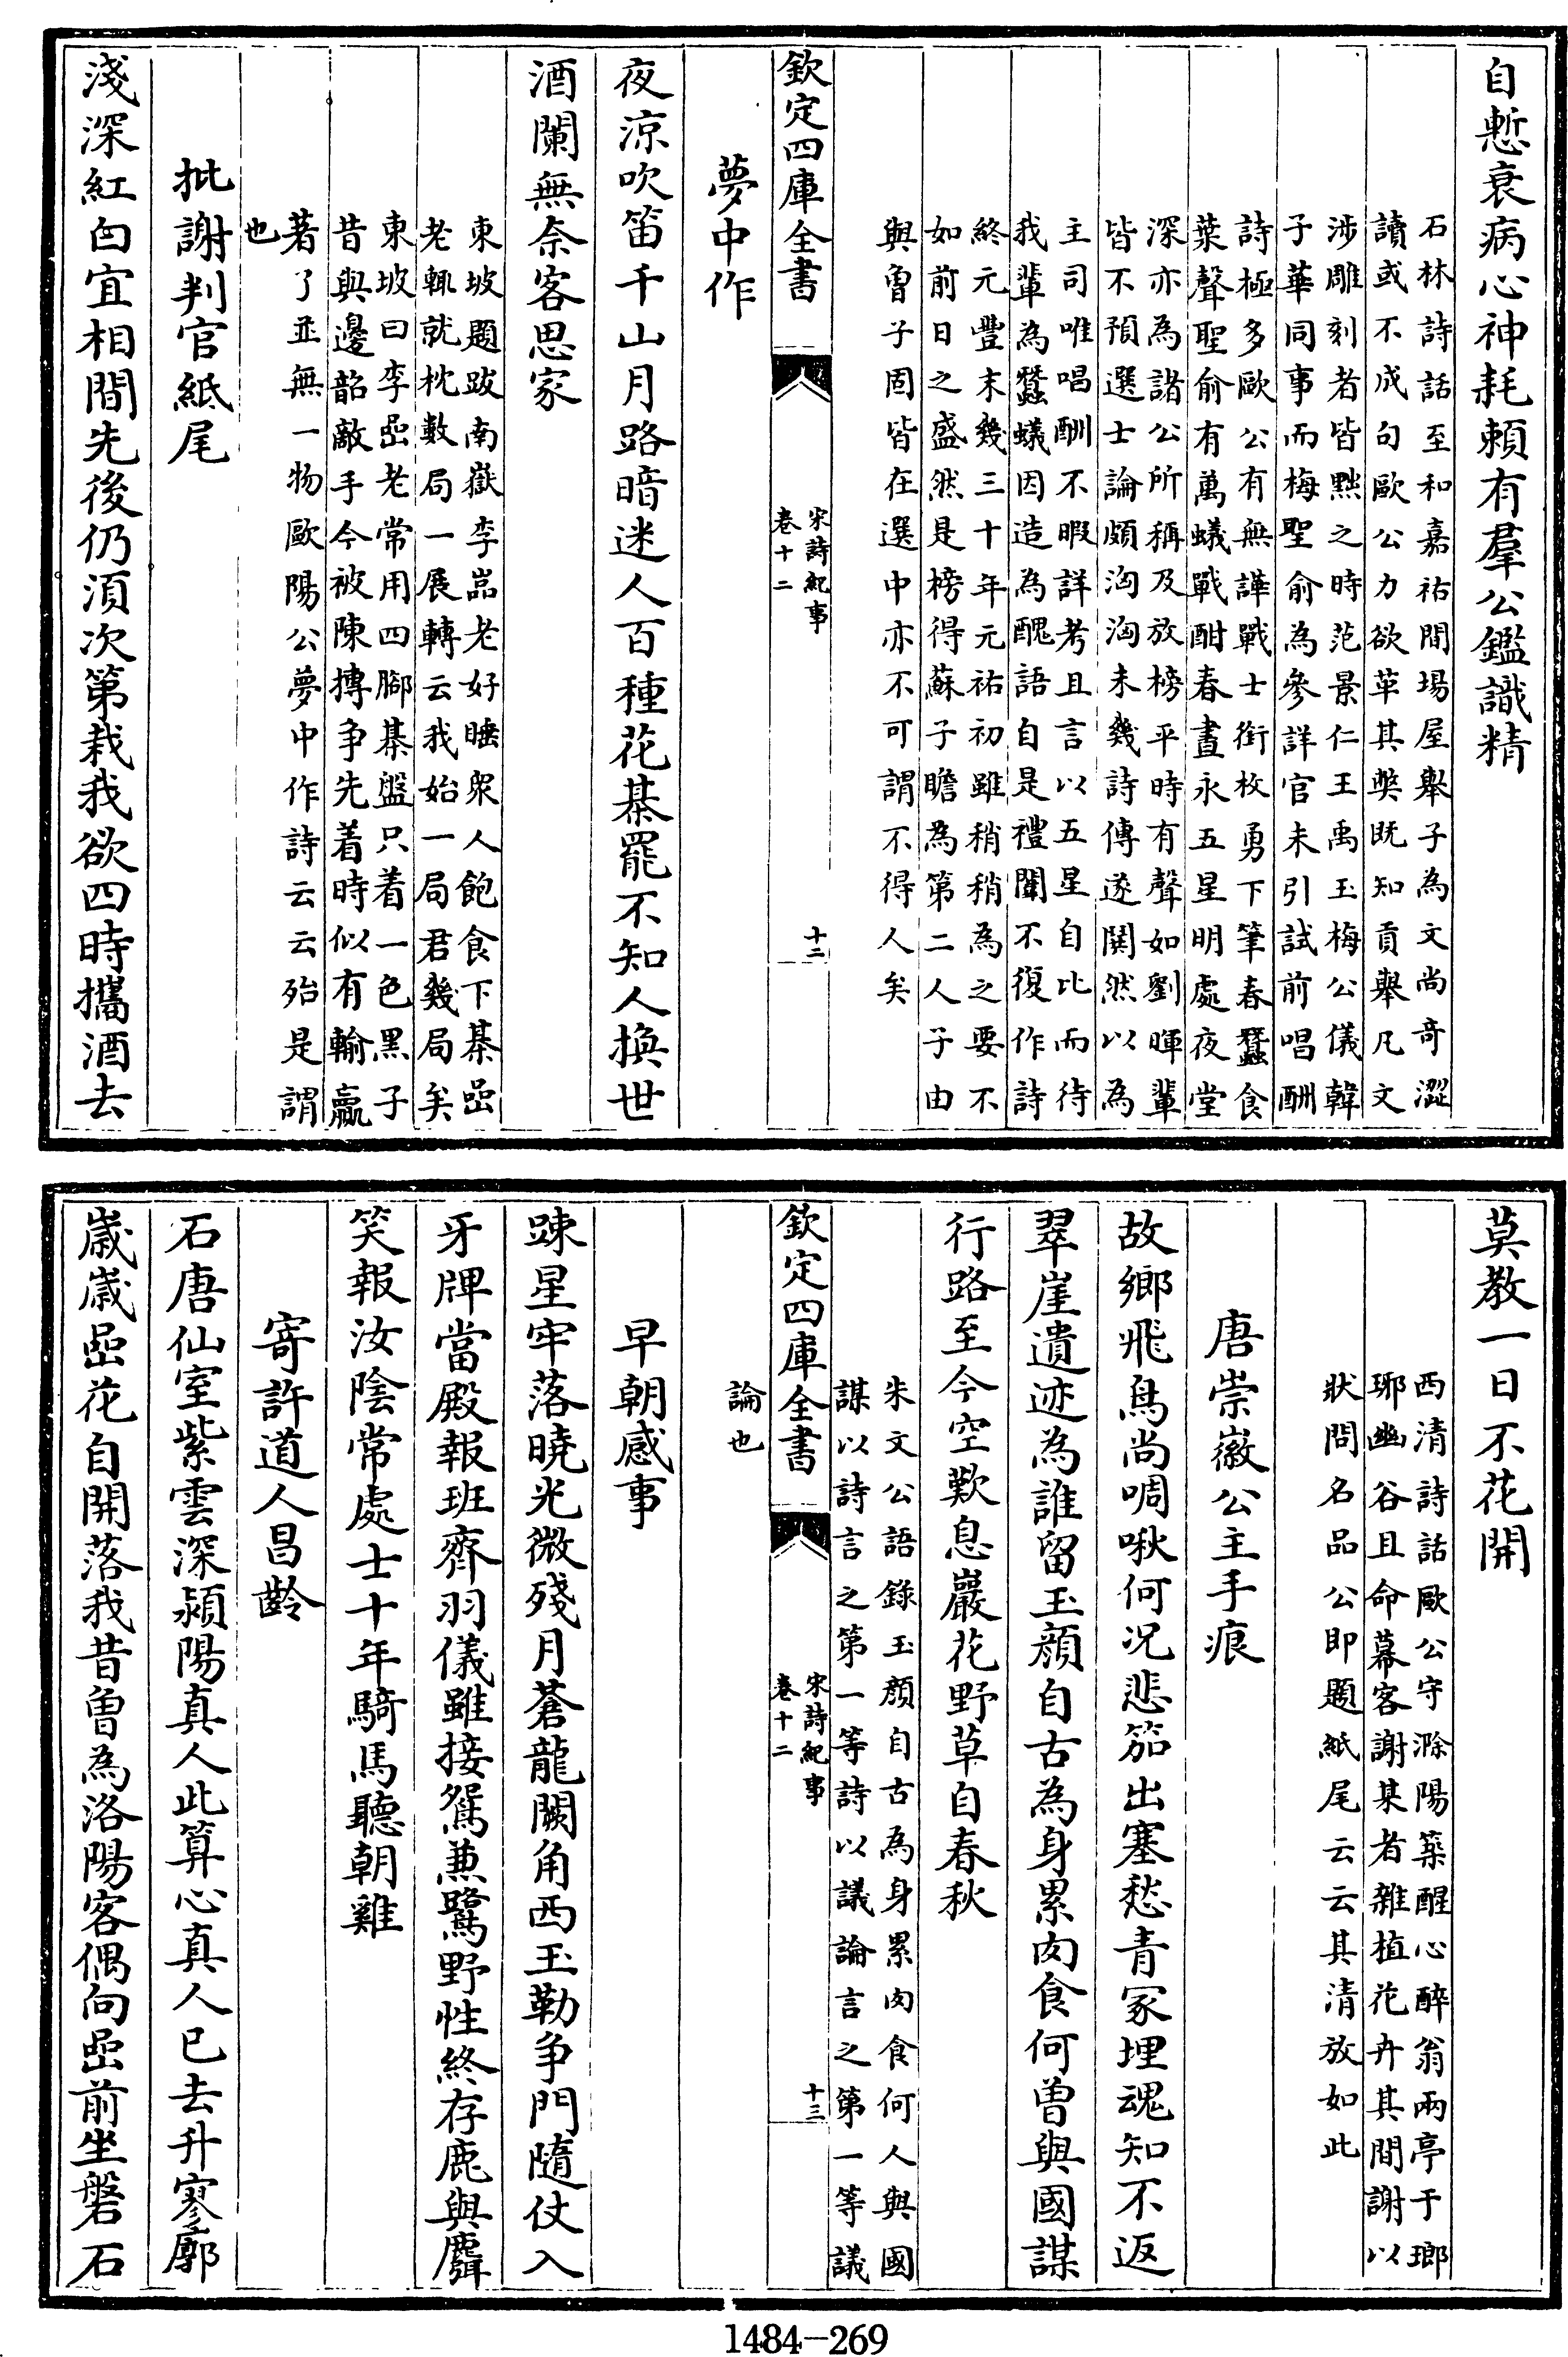 自慙衰病心神耗賴有羣公鑑識精
石林詩話至和嘉祐間場屋舉子為文尚奇澀
讀或不成句歐公力欲革其弊既知貢舉凡文
涉雕刻者皆黜之時范景仁王禹玉梅公儀韓
子華同事而梅聖俞為參詳官未引試前唱酬
詩極多歐公有無譁戰士銜枚勇下筆春蠶食
葉聲聖俞有萬蟻戰酣春晝永五星明處夜堂
深亦為諸公所稱及放榜平時有聲如劉暉輩
皆不預選士論頗洶洶未幾詩傳遂鬨然以為
主司唯唱酬不暇詳考且言以五星自比而待
我輩為蠶蟻因造為醜語自是禮闈不復作詩
終元豐末幾三十年元祐初雖稍稍為之要不
如前日之盛然是榜得蘇子瞻為第二人子由
與曽子固皆在選中亦不可謂不得人矣
欽定四庫全書
宋詩紀事
卷十二
十二
夢中作
夜涼吹笛千山月路暗迷人百種花棊罷不知人換世
酒闌無奈客思家
東坡題跋南嶽李嵓老好睡衆人飽食下棊嵒
老輒就枕數局一展轉云我始一局君幾局矣
東坡曰李嵒老常用四腳棊盤只着一色黑子
昔與邊韶敵手今被陳摶争先着時似有輸贏
著了並無一物歐陽公夢中作詩云云殆是謂
也
批謝判官紙尾
淺深紅白宜相間先後仍須次第栽我欲四時攜酒去
莫教一日不花開
西清詩話歐公守滁陽築醒心醉翁兩亭于瑯
琊幽谷且命幕客謝某者雜植花卉其間謝以
狀問名品公即題紙尾云云其清放如此
唐崇徽公主手痕
故鄉飛鳥尚啁啾何況悲笳出塞愁青冢埋魂知不返
翠崖遺迹為誰留玉顏自古為身累肉食何曽與國謀
行路至今空歎息巖花野草自春秋
朱文公語錄玉顏自古為身累肉食何人與國
謀以詩言之第一等詩以議論言之第一等議
欽定四庫全書
宋詩紀事
卷十二
十三
論也
早朝感事
踈星牢落曉光微殘月蒼龍闕角西玉勒争門隨仗入
牙牌當殿報班齊羽儀雖接鴛兼鷺野性終存鹿與麛
笑報汝陰常處士十年騎馬聽朝雞
寄許道人昌齡
石唐仙室紫雲深潁陽真人此算心真人已去升寥廓
歲歲嵒花自開落我昔曽為洛陽客偶向嵒前坐磐石
1484-269